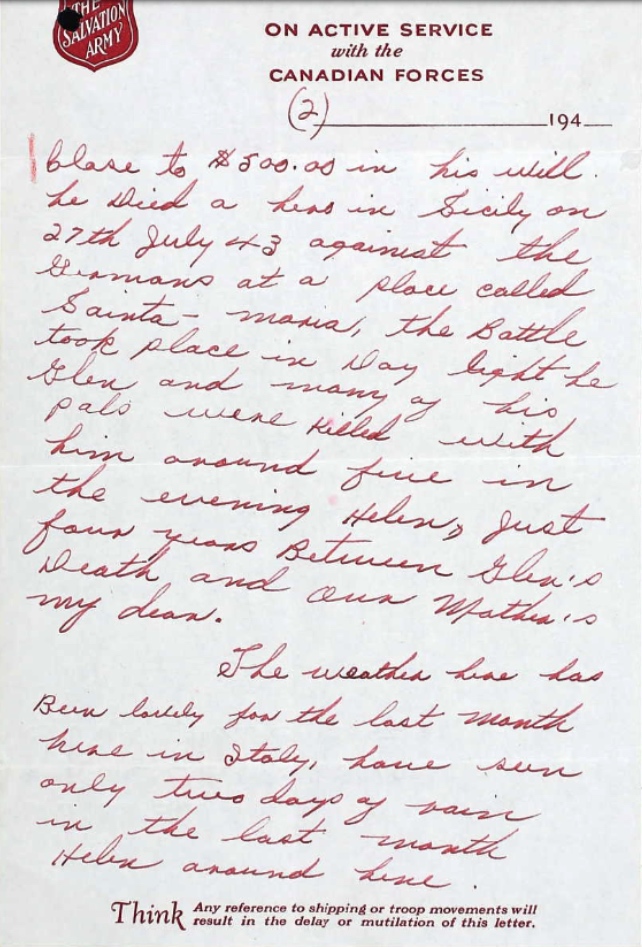 THE
SALVATION
ARMY
ON ACTIVE SERVICE
with the
CANADIAN FORCES
(2) 194
close to $500.00 in his will.
he Died a hero in Sicily on
27th July 43 against the
Germans at a place called
Santa-maria, the Battle
took place in Day light he
Glen and many of his
pals were killed with
him around five in
the evening Helen, Just
four years Between Glen's
Death and Our Mother's
my dear.
The weather here has
Been lovely for the last month
here in Italy, have seen
only two days of rain
in the last month
Helen around here.
Think Any reference to shipping or troop movements will
result in the delay or mutilation of this letter.